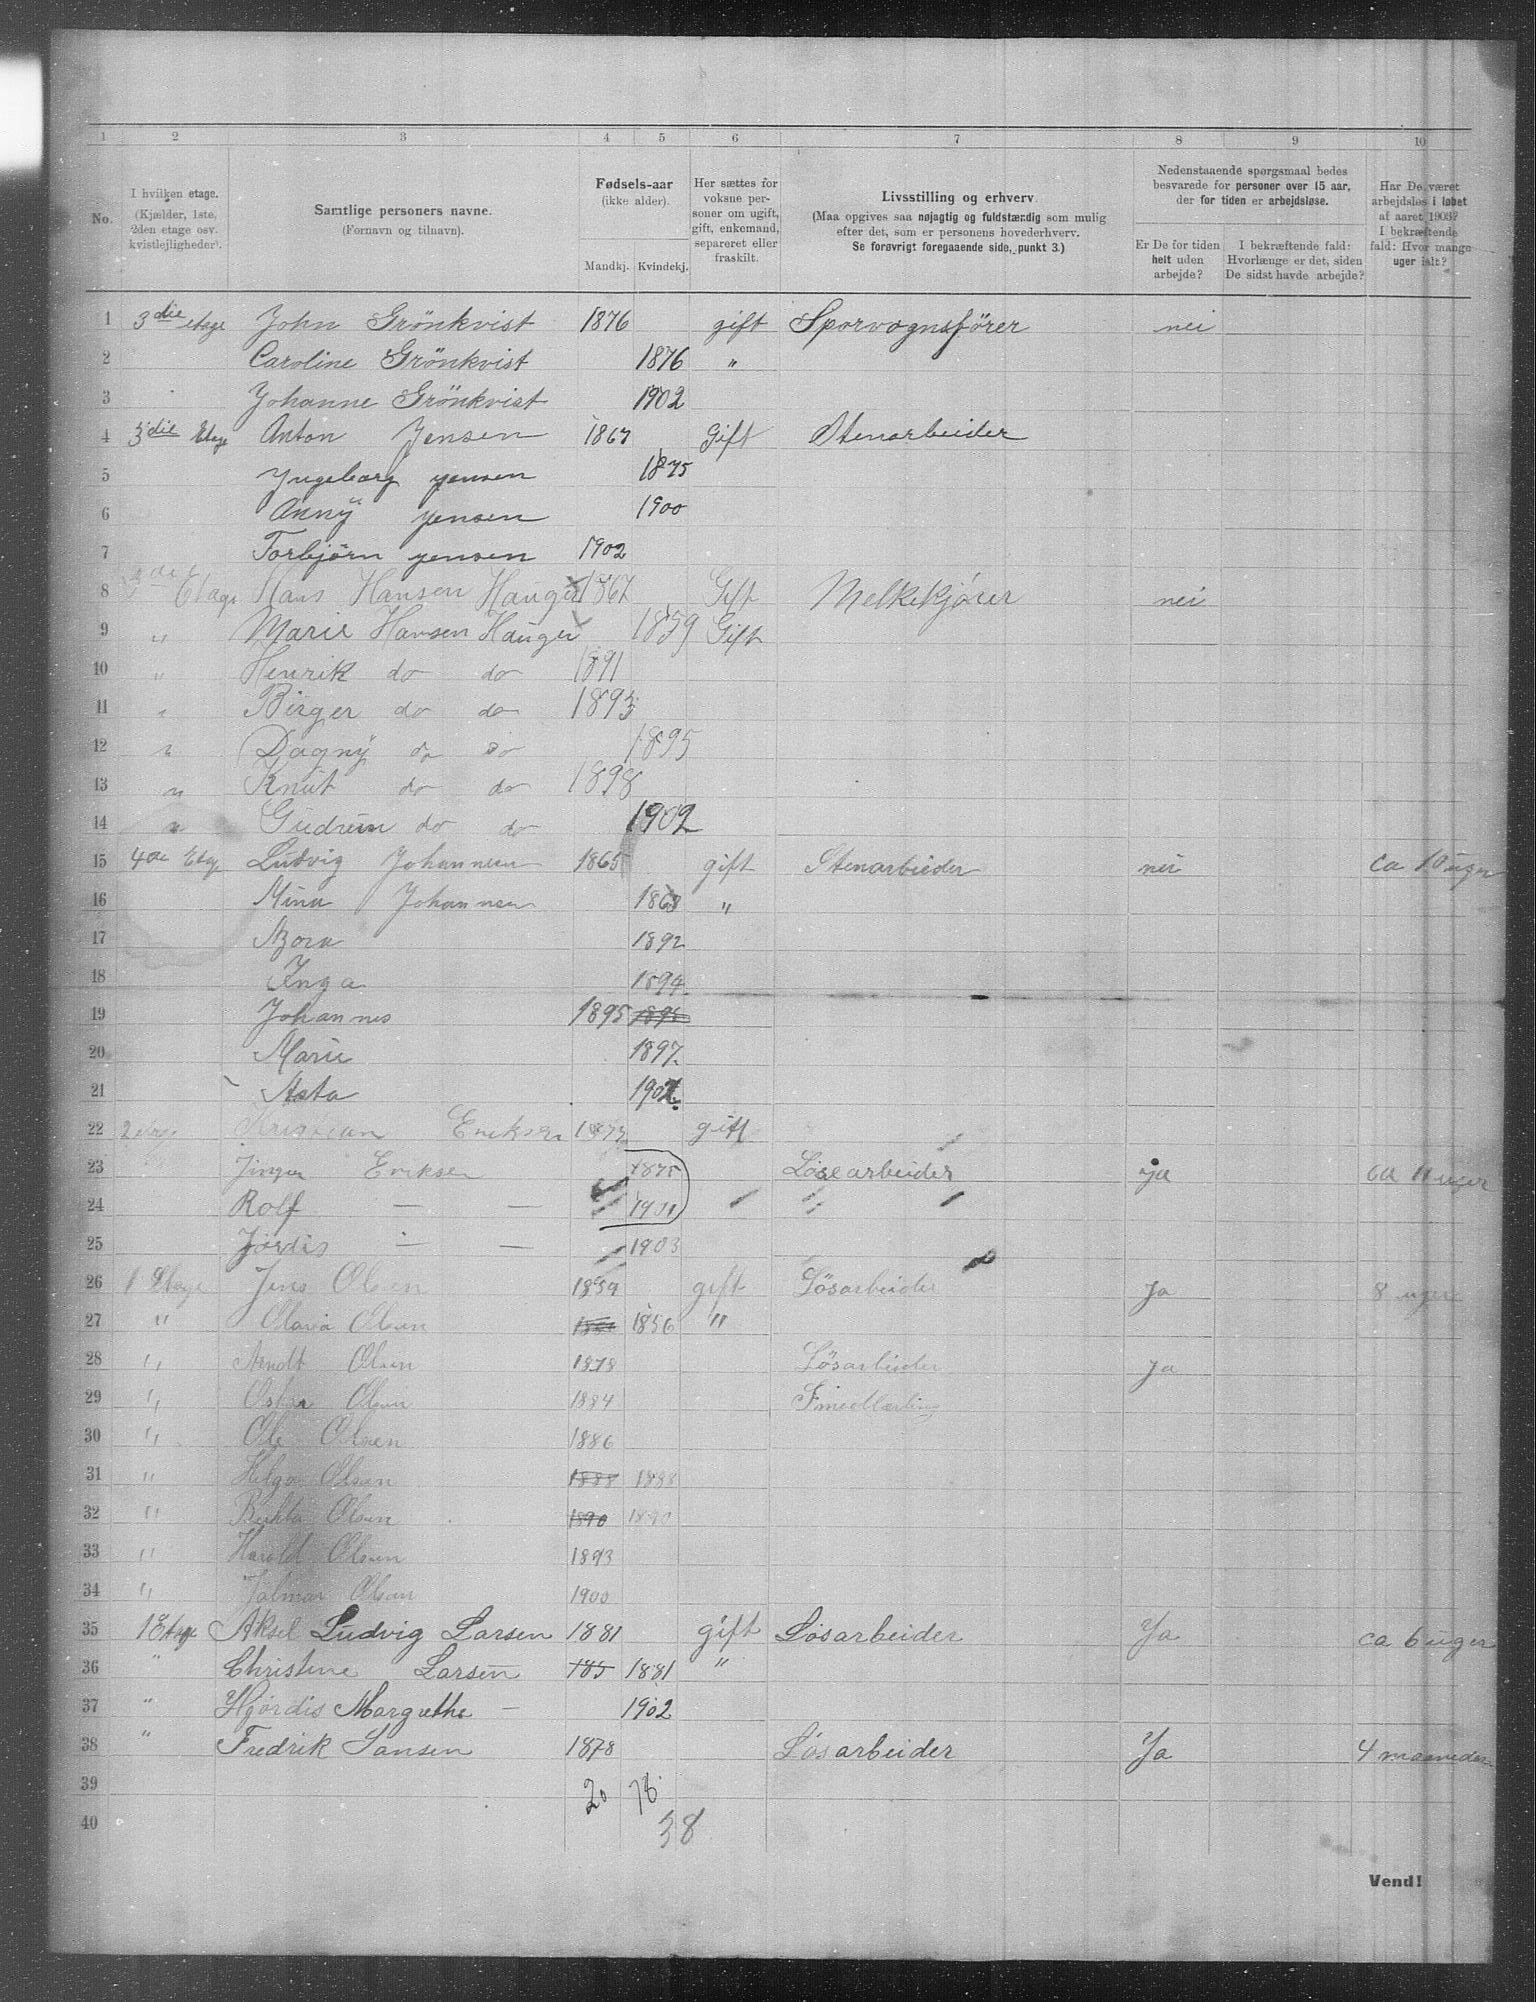 1 2 3 4 5 6 7 8 9 10
No.
I hvilken etage.
(Kjælder, 1ste,
2den etage osv.
kvistlejligheder).
Samtlige personers navne.
(Fornavn og tilnavn).
Fødsels-aar
(ikke alder).
Mandkj. Kvindekj.
Her sættes for
voksne per-
soner om ugift,
gift, enkemand,
separeret eller
fraskilt.
Livsstilling og erhverv.
(Maa opgives saa nøjagtig og fuldstændig som mulig
efter det, som er personens hovederhverv.
Se forøvrigt foregaaende side, punkt 3.)
Nedenstaaende spørgsmaal bedes
besvarede for personer over 15 aar,
der for tiden er arbejdsløse.
Er De for tiden
helt uden
arbejde?
I bekræftende fald:
Hvorlænge er det, siden
De sidst havde arbejde?
Har De været
arbejdsløs i løbet
af aaret 1903?
I bekræftende
fald: Hvor mange
uger ialt?
1 3die etage John Grönkvist 1876 gift Sporvognsförer nei
2 Caroline Grönkvist 1876 "
3 Johanne Grönkvist 1902
4 3die Etage Anton Jensen 1867 Gift Stenarbeider
5 Yngeborg Jensen 1875
6 Anny Jensen 1900
7 Torbjörn Jensen 1902
8 3die Etage Hans Hansen Hauger 1867 Gift Melkekjører nei
9 " Marie Hansen Hauger 1859 Gift
10 " Henrik do do 1891
11 " Birger do do 1893
12 " Dagny do do 1895
13 " Knut do do 1898
14 " Gudrun do do 1902
15 4de Etg Ludvig Johannesen 1865 gift Stenarbieder nei ca 10 uger
16 Mina Johannesen 1863 "
17 Azora 1892
18 Inga 1894
19 Johannes 1895 1895
20 Marie 1897
21 Asta 1901
22 2 etage Kristian Eriksen 1873 gift
23 Jinga Eriksen 1875 Løsearbeider ja ca 11 uger
24 Rolf — — 1901
25 Jordis — — 1903
26 1 Etage Jens Olsen 1859 gift Lösarbeider Ja 8 uger
27 " Olava Olsen 1856 "
28 " Arndt Olsen 1878 Lösarbeider Ja
29 " Oskar Olsen 1884 Smedlærling
30 " Ole Olsen 1886
31 " Helga Olsen 1888 1888
32 " Berta Olsen 1890 1890
33 " Harold Olsen 1893
34 " Jalmar Olsen 1900
35 1 Etage Aksel Ludvig Larsen 1881 gift Løsarbeider Ja ca 6 uger
36 " Christine Larsen 185 1881 "
37 " Hjørdis Margrethe — 1902
38 " Fredrik Jansen 1878 Løsarbeider Ja 4 maaneder
39 20 18
40 38
Vend!